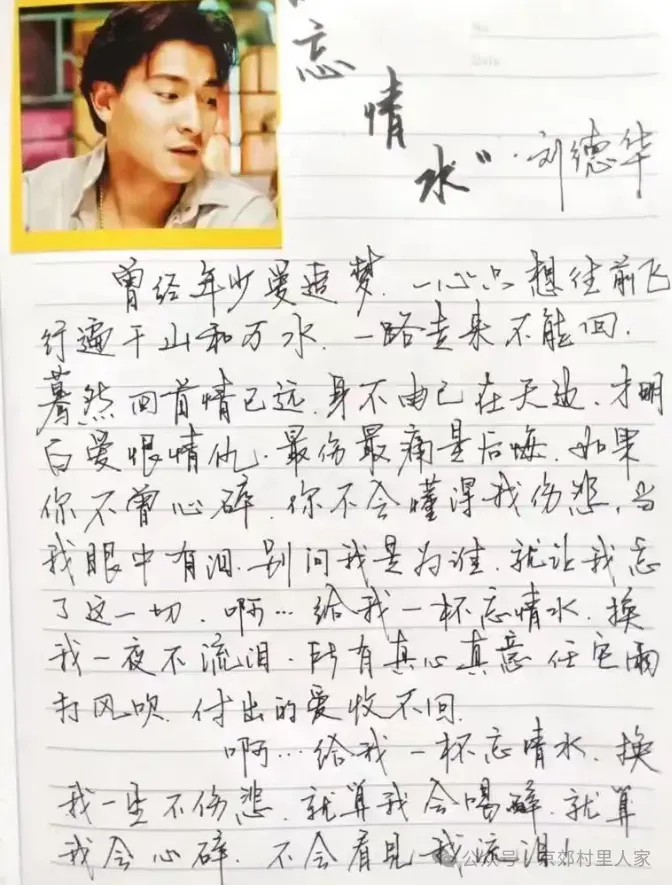 忘
情
水"·刘德华
No.
Date
曾经年少爱追梦.一心只想往前飞
行遍千山和万水.一路走来不能回.
蓦然回首情已远.身不由己在天边.才明
白爱恨情仇.最伤最痛是后悔.如果
你不曾心碎.你不会懂得我伤悲.当
我眼中有泪.别问我是为谁.就让我忘
了这一切.啊…给我一杯忘情水.换
我一夜不流泪.所有真心真意任它雨
打风吹.付出的爱收不回.
啊…给我一杯忘情水.换
我一生不伤悲.就算我会喝醉.就算
我会心碎.不会看见我流泪!
公众号|京郊村里人家